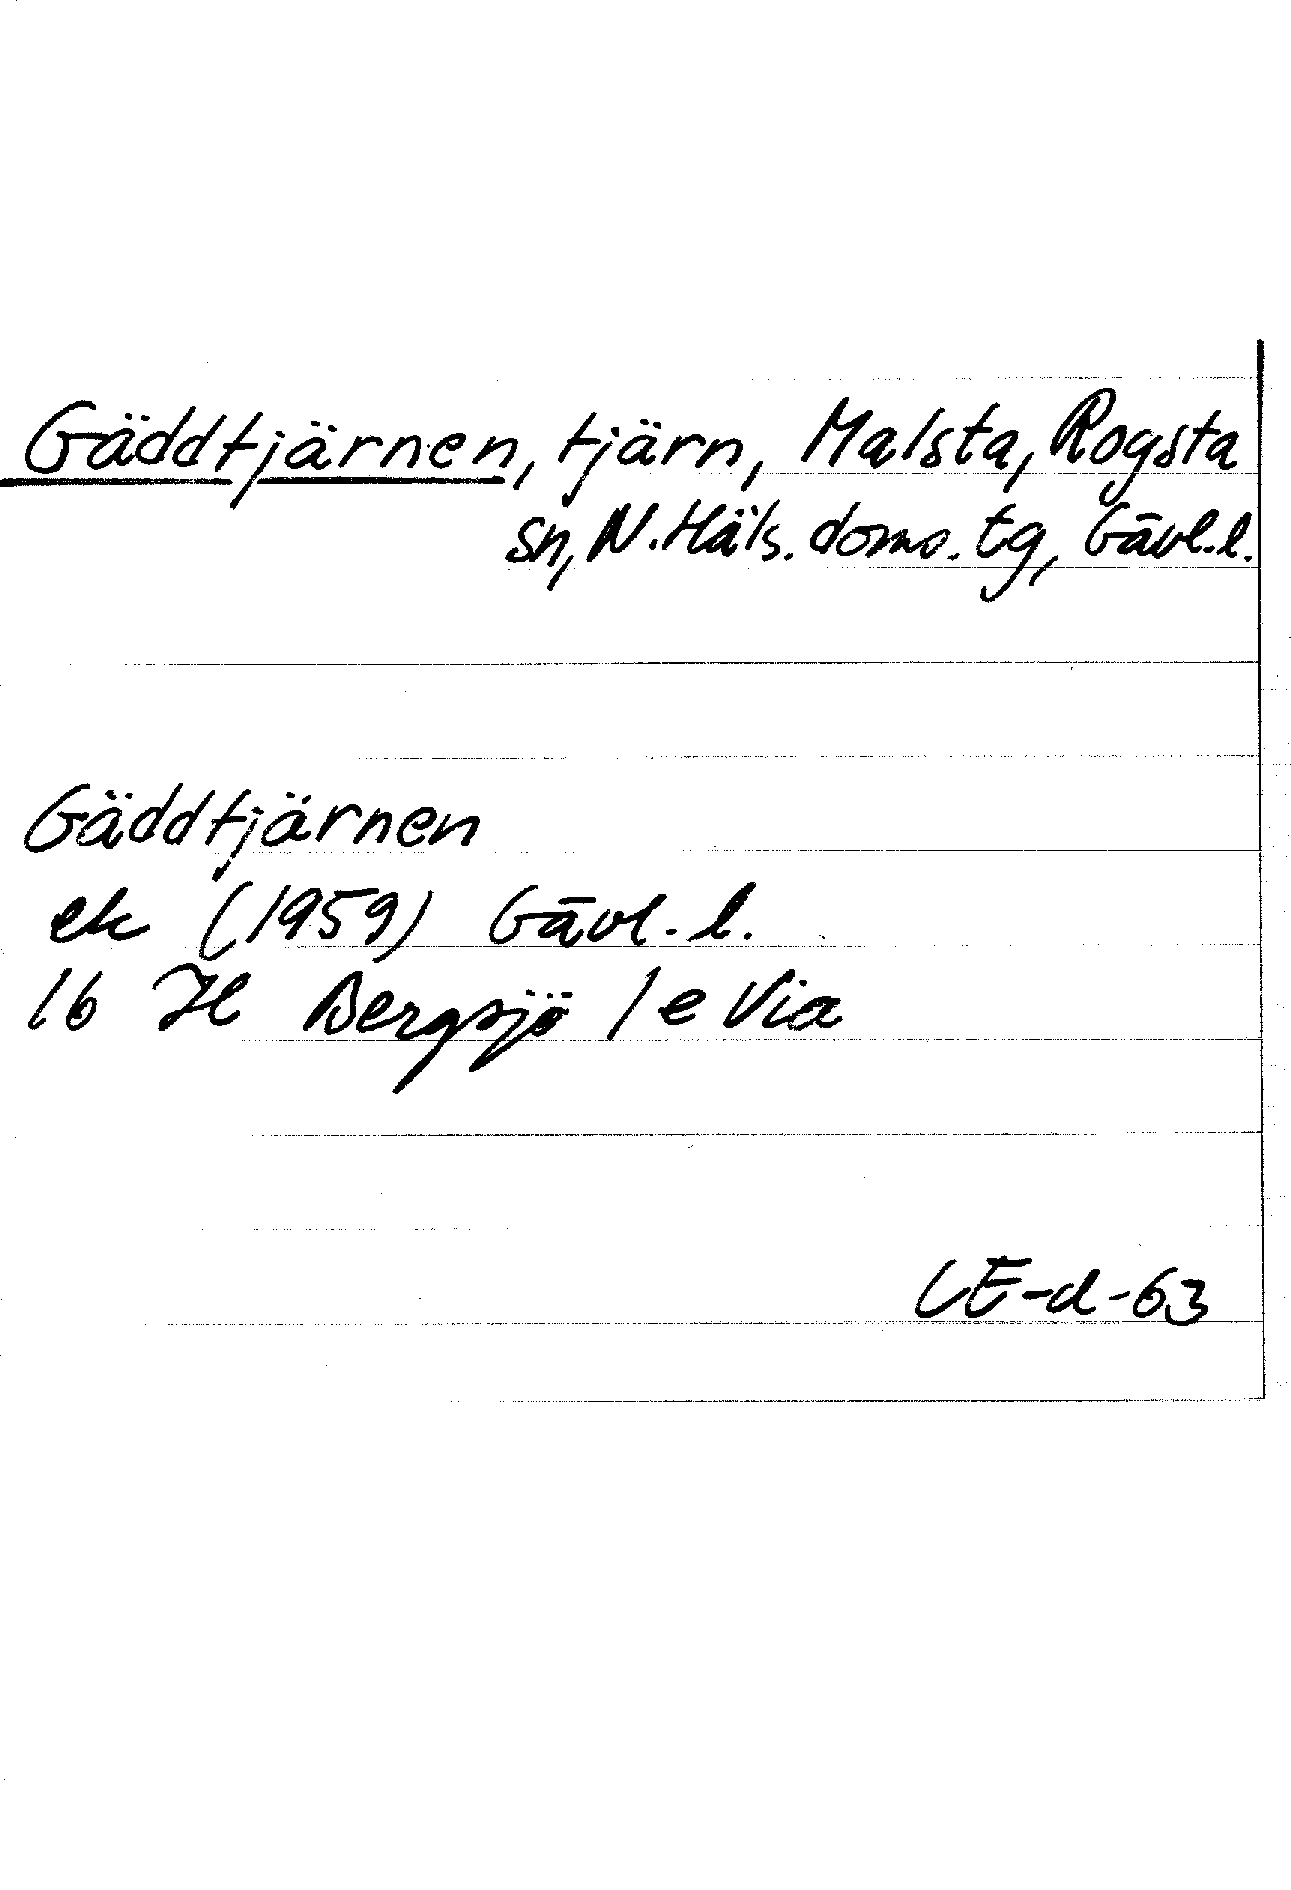 Gäddtjärnen, tjärn, Malsta, Rogsta
sn, N. Häls. doms. tg, Gävl. l.
Gäddtjärnen
ek (1959) Gävl. l.
16 H Bergsjö 1 e Via
LE-d-63